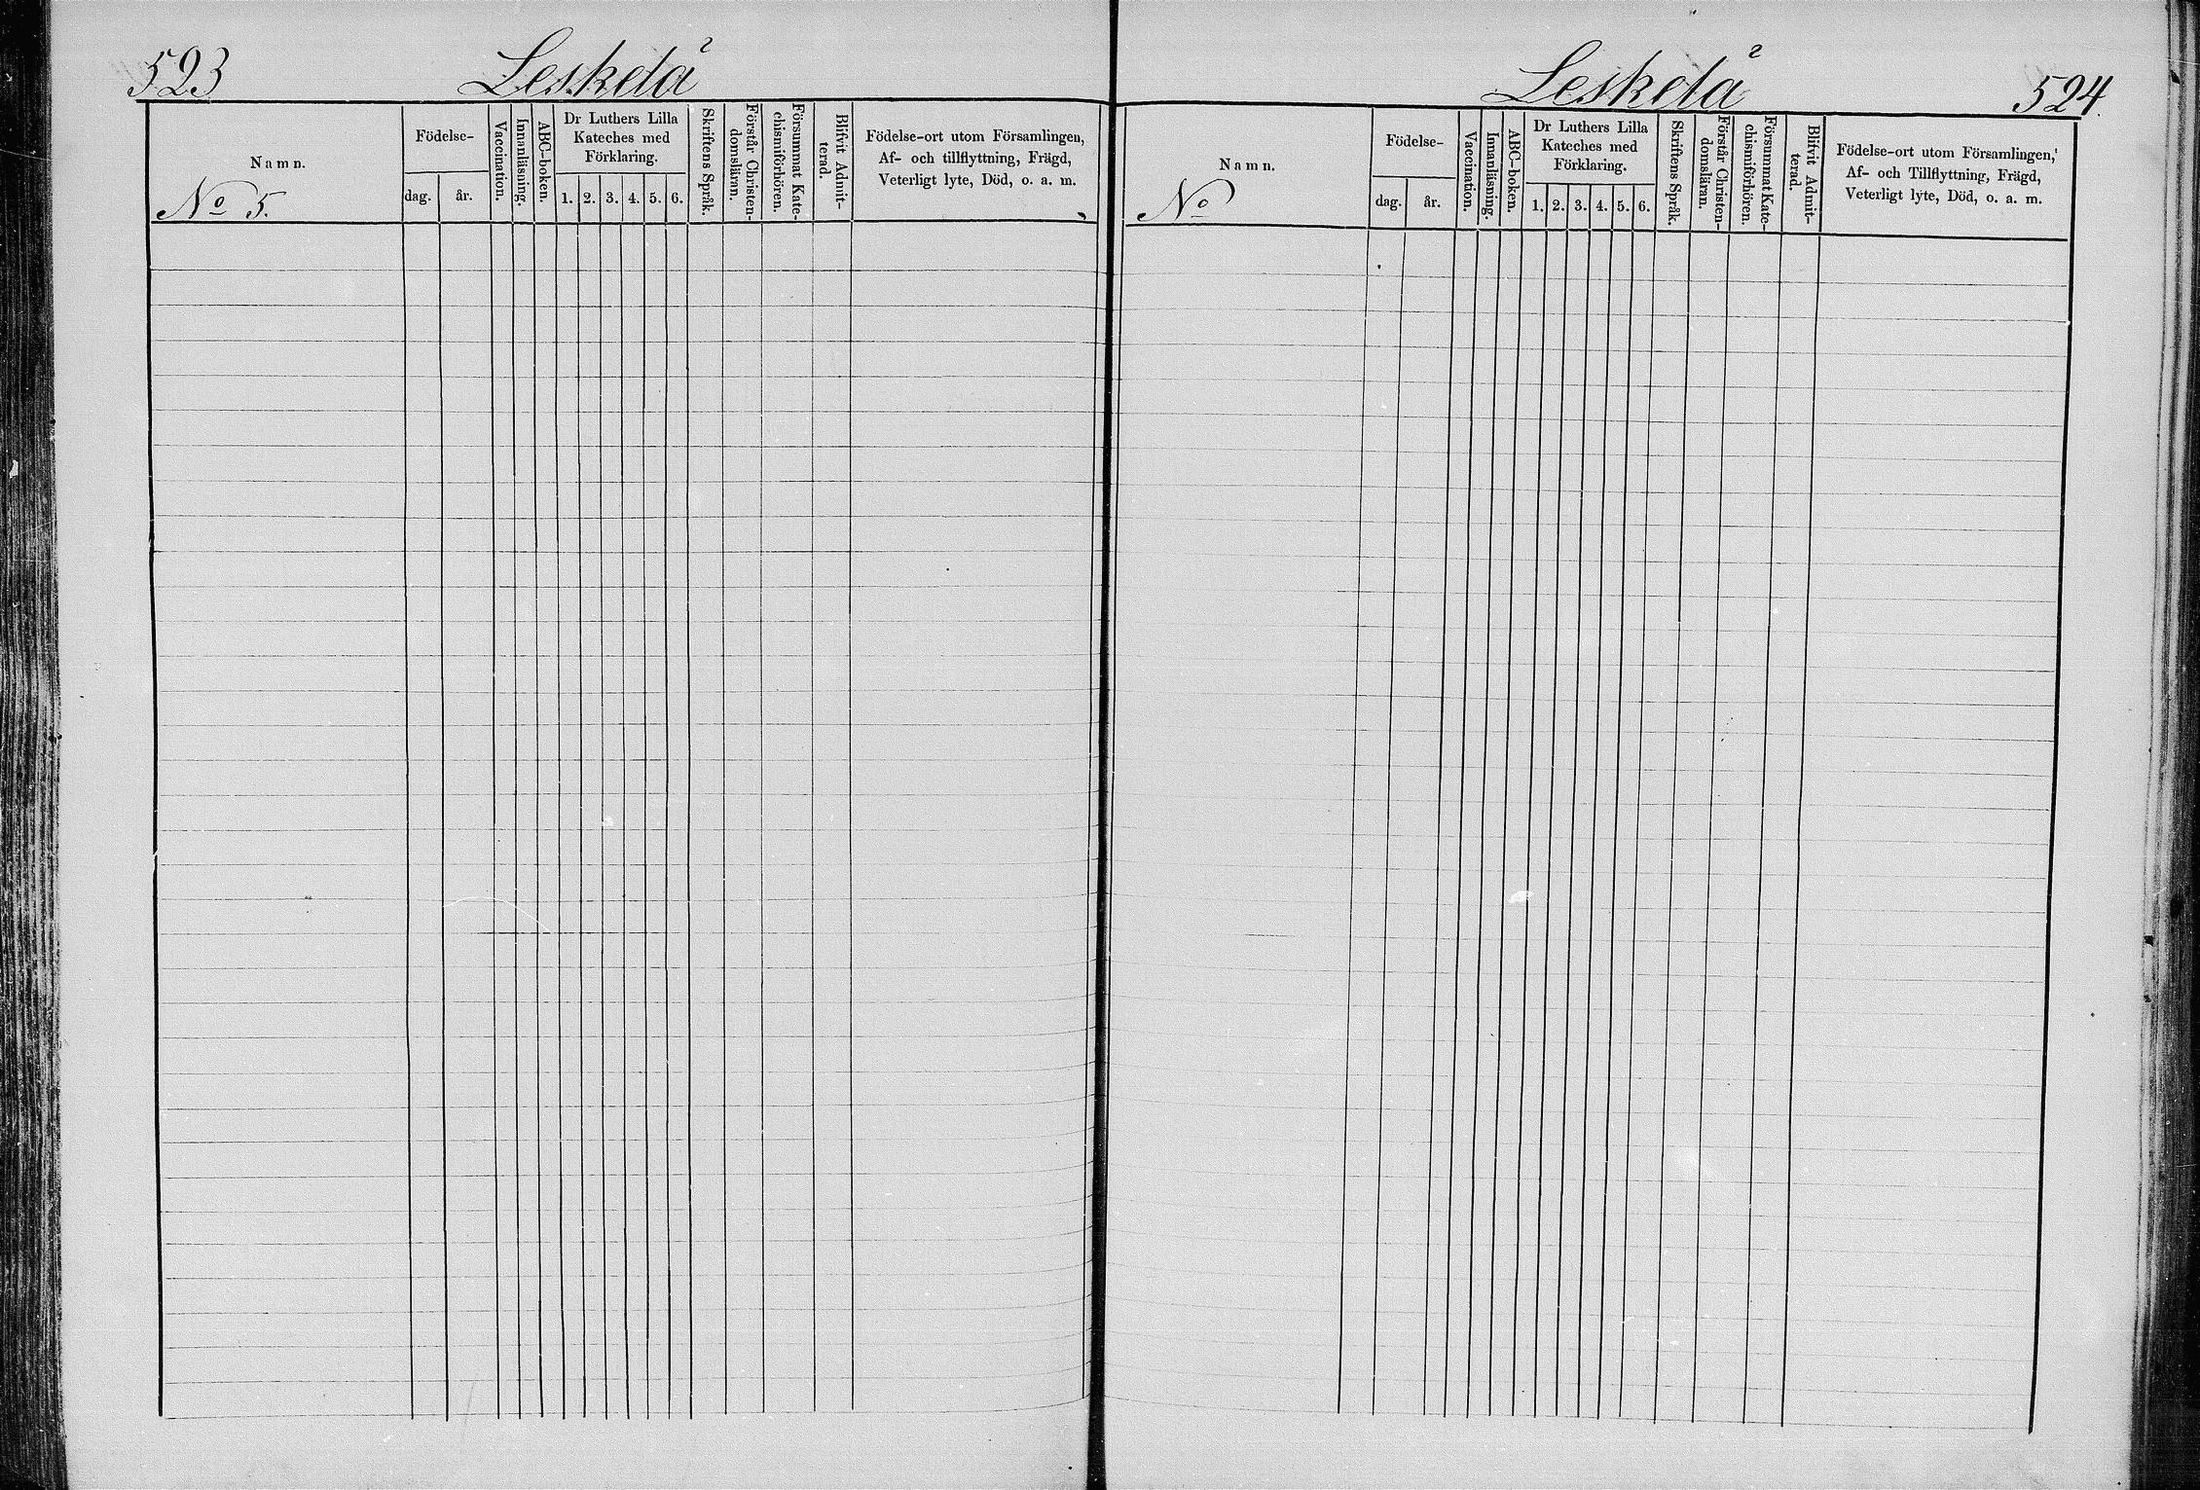 523
Leskelä
Namn.
No 5.
Födelse-
dag.
år.
Vaccination.
Innanläsning.
ABC-boken.
Dr Luthers Lilla
Kateches med
Förklaring.
1. 2. 3. 4. 5. 6.
Skriftens Språk.
Förstår Christen-
domsläran.
Försummat Kate-
chismiförhören.
Blifvit Admit-
terad.
Födelse-ort utom Församlingen,
Af- och tillflyttning, Frägd,
Veterligt lyte, Död, o. a. m.
Leskelä
524.
Namn.
No
Födelse-
dag.
år.
Vaccination.
Innanläsning.
ABC-boken.
Dr Luthers Lilla
Kateches med
Förklaring.
1. 2. 3. 4. 5. 6.
Skriftens Språk.
Förstår Christen-
domsläran.
Försummat Kate-
chismiförhören.
Blifvit Admit-
terad.
Födelse-ort utom Församlingen,
Af- och Tillflyttning, Frägd,
Veterligt lyte, Död, o. a. m.